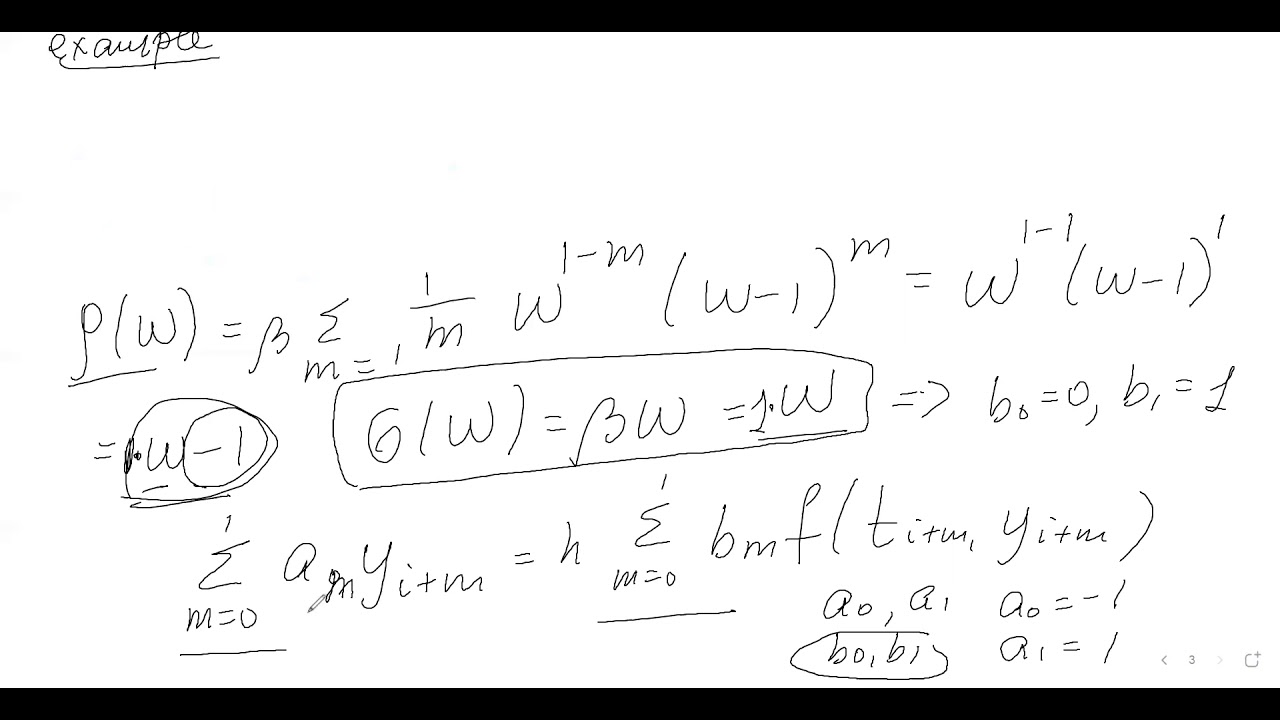 example
ρ(w) = β Σ_{m=1}^{1} 1/m w^{1-m} (w-1)^m = w^{1-1} (w-1)^1
= 1·w - 1   σ(w) = βw = 1·w => b₀ = 0, b₁ = 1
Σ_{m=0}^{1} a_m y_{i+m} = h Σ_{m=0}^{1} b_m f(t_{i+m}, y_{i+m})
a₀, a₁   a₀ = -1
b₀, b₁   a₁ = 1
< 3 >